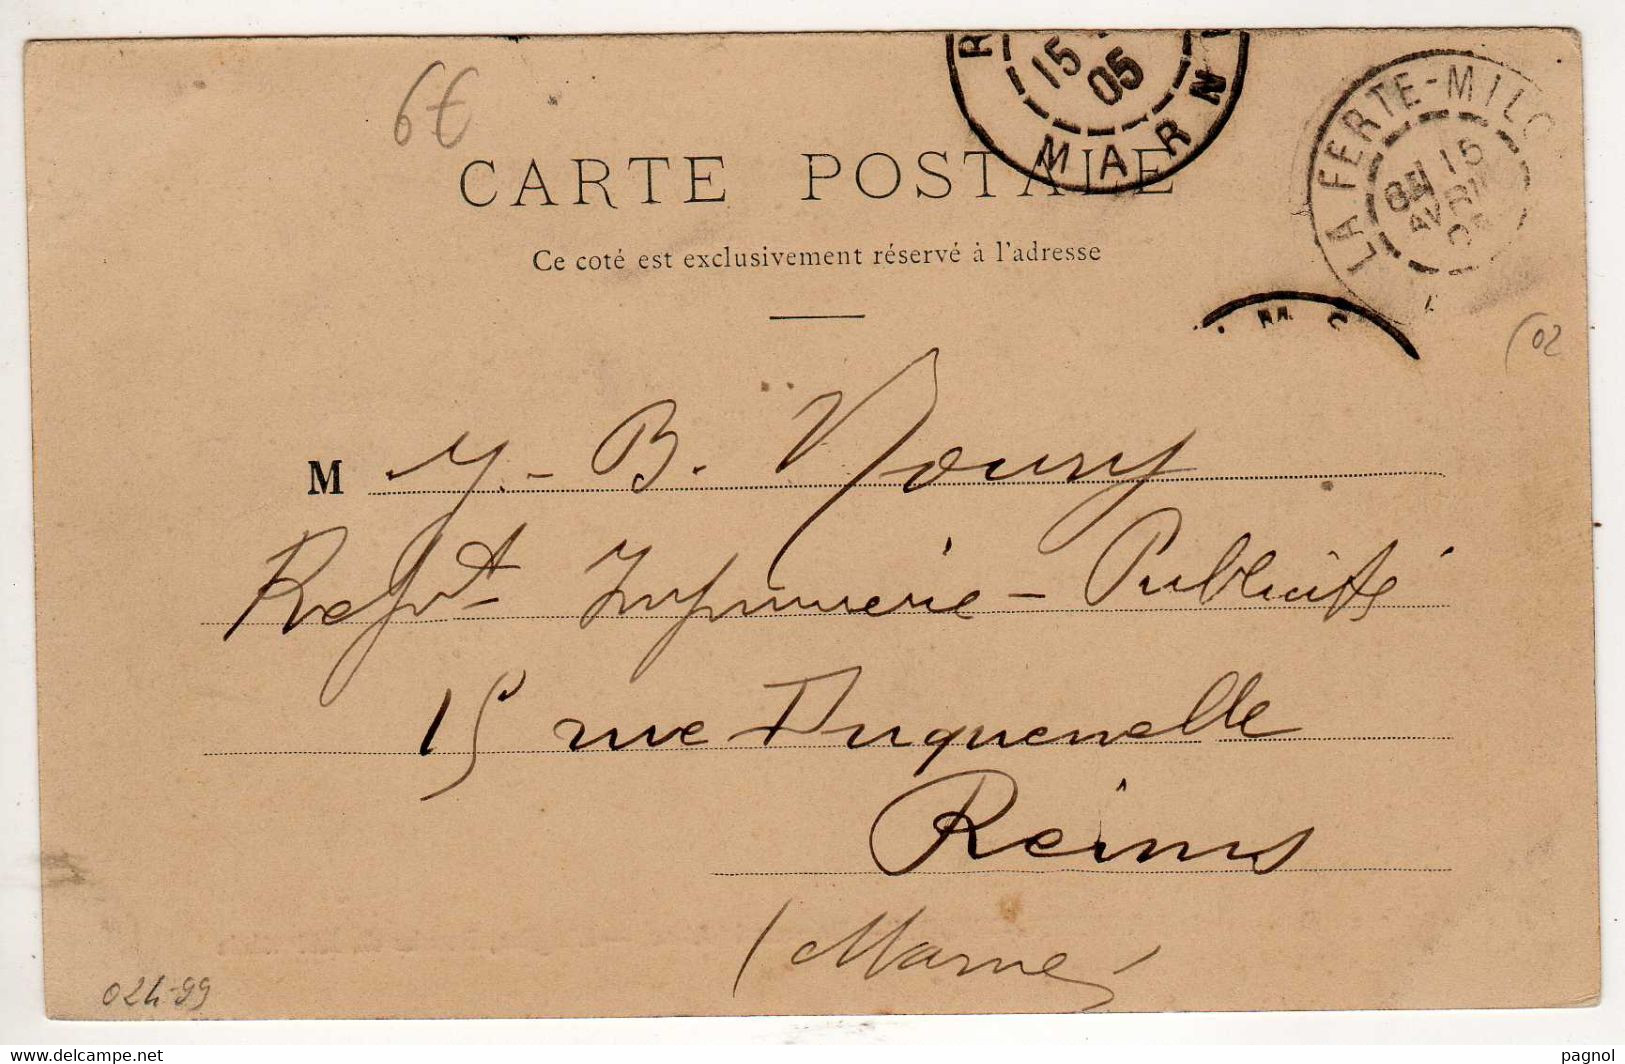 6€
15
05
MARN
LA FERTE-MILO
15
AVRIL
05
CARTE POSTALE
Ce coté est exclusivement réservé à l'adresse
(02
M J.-B. Noury
Imprimerie - Publicité
15 rue Duquenelle
Reims
(Marne)
024-99
pagnol